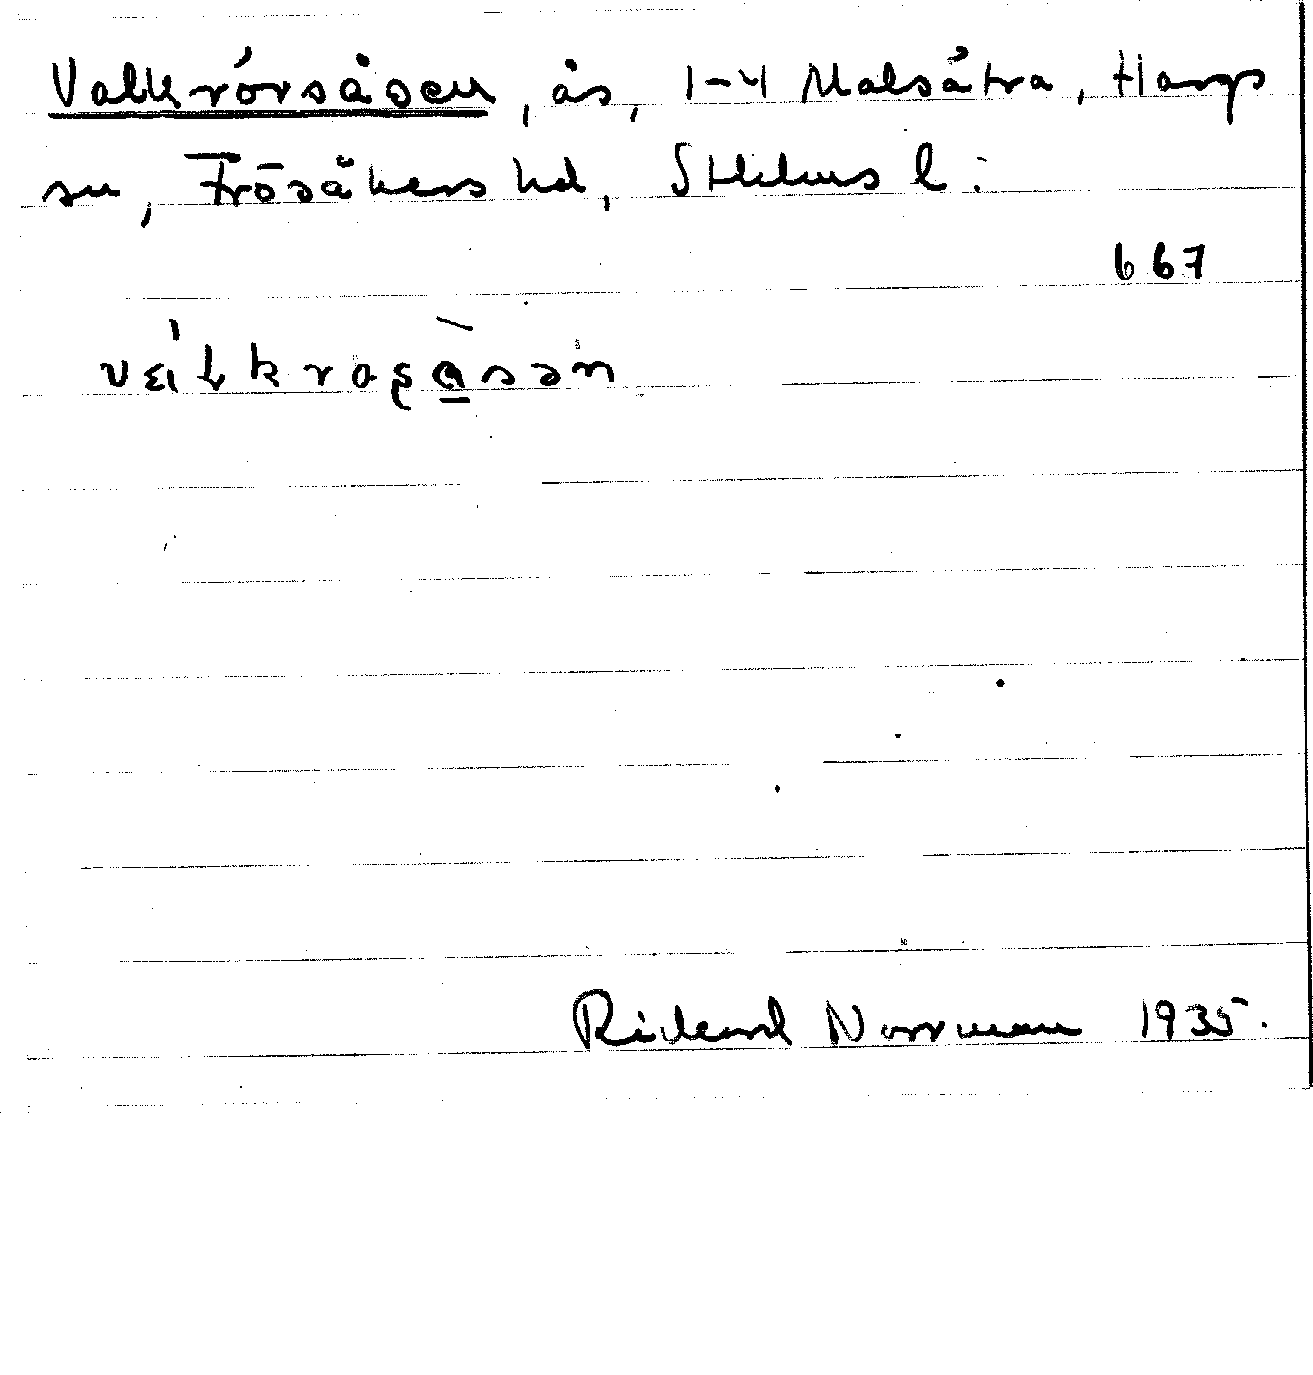 Valkrörsåsen, ås, 1-4 Malsätra, Hargs
sn, Frösåkers hd, Sthlms l.
667
Rickard Norrman 1935.